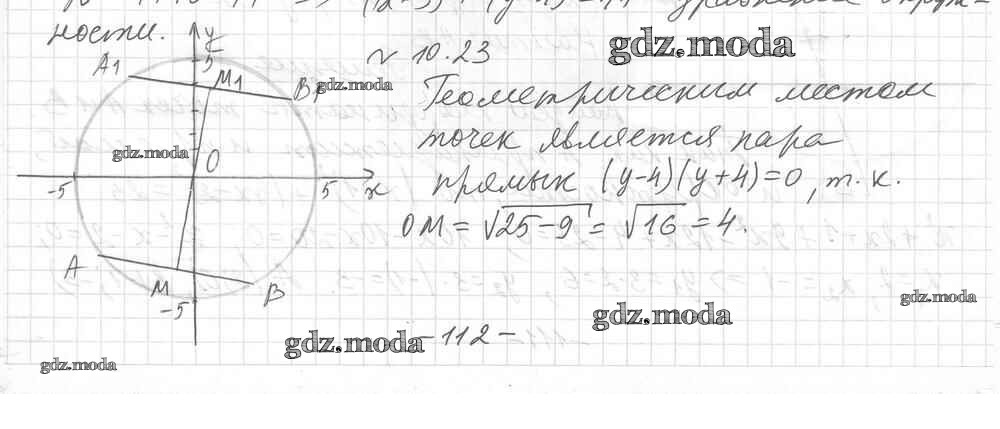 ности.
№ 10.23
gdz.moda
Геометрическим местом
точек является пара
прямых (y-4)(y+4)=0, т.к.
OM = √25-9 = √16 = 4.
y
5
A1
M1
B1
gdz.moda
gdz.moda
O
-5
5
x
A
M
B
-5
gdz.moda
gdz.moda
gdz.moda
-112-
gdz.moda